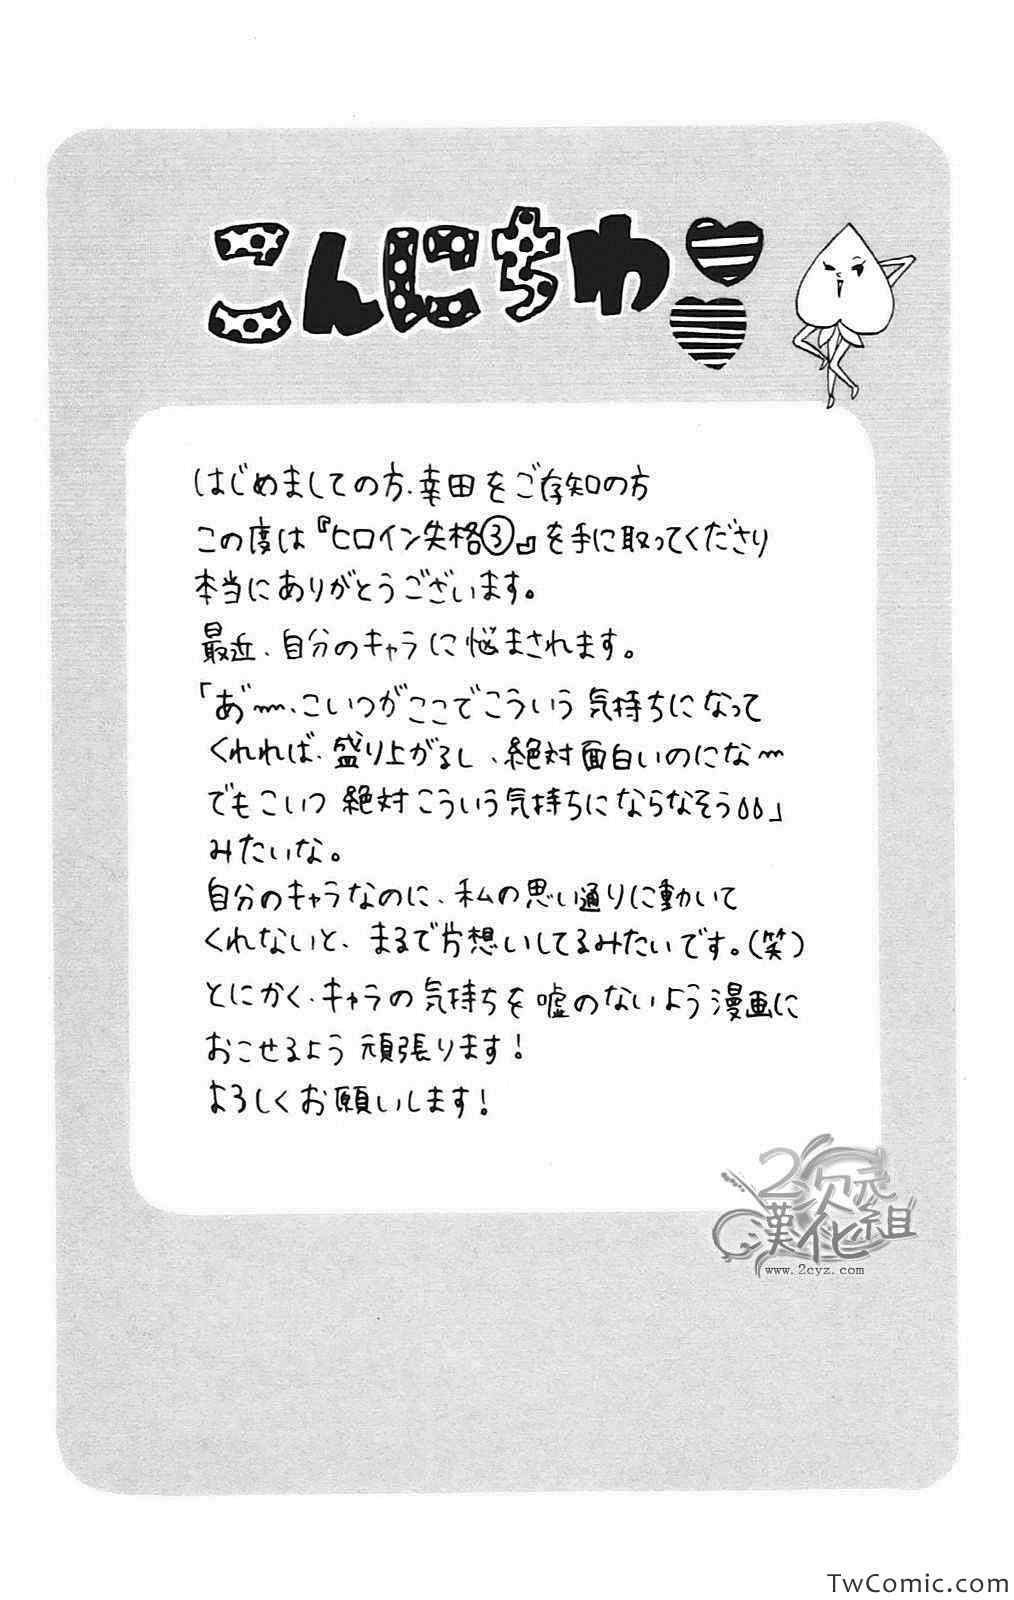 こんにちわ♥♥
はじめましての方、幸田をご存知の方
この度は『ヒロイン失格③』を手に取ってくださり
本当にありがとうございます。
最近、自分のキャラに悩まされます。
「あ゛〜、こいつがここでこういう気持ちになって
くれれば、盛り上がるし、絶対面白いのにな〜
でもこいつ絶対こういう気持ちにならなそう」
みたいな。
自分のキャラなのに、私の思い通りに動いて
くれないと、まるで片想いしてるみたいです。(笑)
とにかく、キャラの気持ちを嘘のないよう漫画に
おこせるよう頑張ります!
よろしくお願いします!
2次元
漢化組
www.2cyz.com
TwComic.com